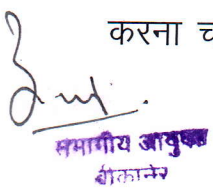 करना च
संभागीय आयुक्त
बीकानेर